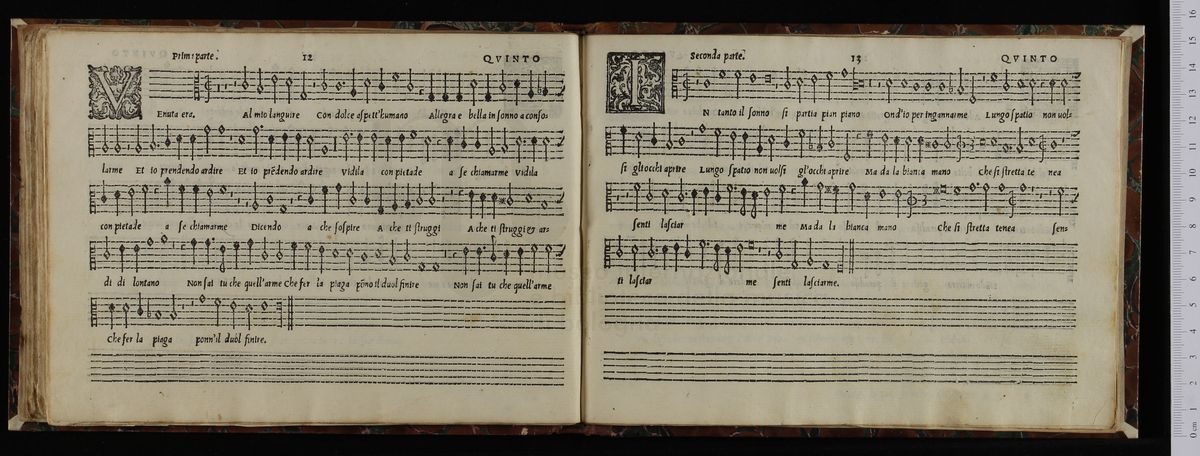 Prima parte. 12 QVINTO
VEnuta era. Al mio languire Con dolce aspett'humano Allegra e bella in sonno a conso-
larme Et io prendendo ardire Et io prēdendo ardire Vidila con pietade a se chiamarme Vidila
con pietade a se chiamarme Dicendo a che sospire A che ti struggi A che ti struggi & ar-
di di lontano Non sai tu che quell'arme Che fer la piaga pōno il duol finire Non sai tu che quell'arme
Che fer la piaga ponn'il duol finire.
Seconda parte. 13 QVINTO
IN tanto il sonno si partia pian piano Ond'io per ingannarme Lungo spatio non uol-
si gliocchi aprire Lungo spatio non uolsi gl'occhi aprire Ma da la bianca mano Che si stretta te nea
senti lasciar me Ma da la bianca mano Che si stretta tenea sen-
ti lasciar me senti lasciarme.
0 cm 1 2 3 4 5 6 7 8 9 10 11 12 13 14 15 16